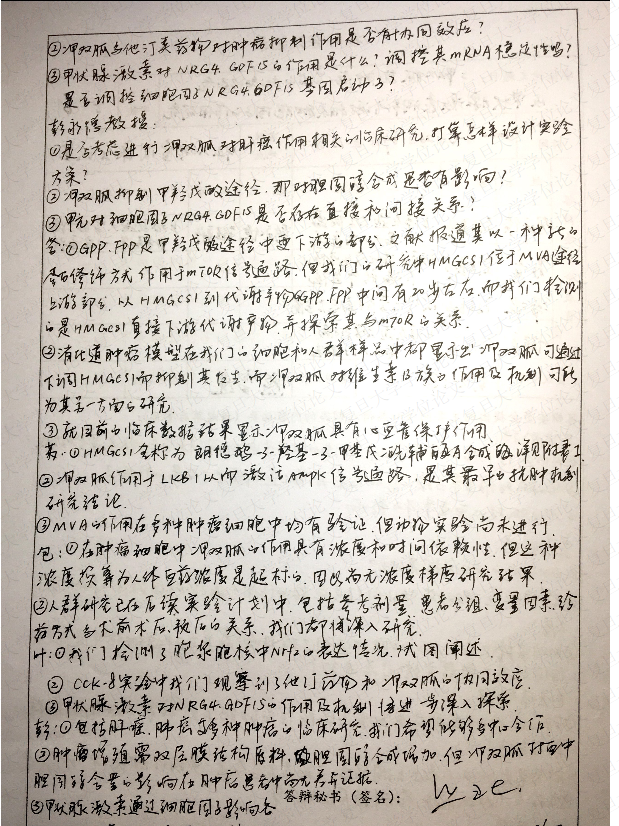 ②二甲双胍与他汀类药物对肿瘤抑制作用是否有协同效应?
③甲状腺激素对NRG4.GDF15的作用是什么?调控其mRNA稳定性吗?
是否调控细胞因子NRG4.GDF15基因启动子?
教授:
①是否考虑进行二甲双胍对肝癌作用相关的临床研究,打算怎样设计实验
方案?
②二甲双胍抑制甲羟戊酸途径,那对胆固醇合成是否有影响?
③甲亢对细胞因子NRG4.GDF15是否存在直接和间接关系?
答:①GPP.FPP是甲羟戊酸途径中更下游的部分.文献报道其以一种新的
蛋白修饰方式作用于mTOR信号通路.但我们的研究中HMGCS1位于MVA途径
上游部分.从HMGCS1到代谢产物GGPP.FPP中间有20步左右.而我们检测
的是HMGCS1直接下游代谢产物.并探索其与mTOR的关系.
②消化道肿瘤模型在我们的细胞和人群样品中都显示出二甲双胍可通过
下调HMGCS1而抑制其发生.而二甲双胍对维生素B族的作用及机制可能
为其另一方面的研究.
③就目前的临床数据结果显示二甲双胍具有心血管保护作用
①HMGCS1全称为 3-羟基-3-甲基戊二酰辅酶A合成酶 详见附表1
②二甲双胍作用于LKB1从而激活AMPK信号通路,是其最早的抗肿机制
研究结论.
③MVA的作用在多种肿瘤细胞中均有验证.但动物实验尚未进行.
包:①在肿瘤细胞中二甲双胍的作用具有浓度和时间依赖性.但这种
浓度换算为人体血药浓度是超标的.因此尚无浓度梯度研究结果.
②人群研究已在后续实验计划中.包括参考剂量.患者分组.变量因素.给
药方式与术前术后.预后的关系.我们都将深入研究.
叶:①我们检测了胞浆胞核中Nrf2的表达情况.试图阐述.
②CCK-8实验中我们观察到了他汀药物和二甲双胍的协同效应.
③甲状腺激素对NRG4.GDF15的作用及机制待进一步深入探索.
彭:①包括肝癌.肺癌等多种肿瘤的临床研究.我们希望能够多中心合作.
②肿瘤增殖需双层膜结构原料.胆固醇合成增加.但二甲双胍对血中
胆固醇含量的影响在肿瘤患者中尚无充分证据.
③甲状腺激素通过细胞因子影响 答辩秘书(签名):